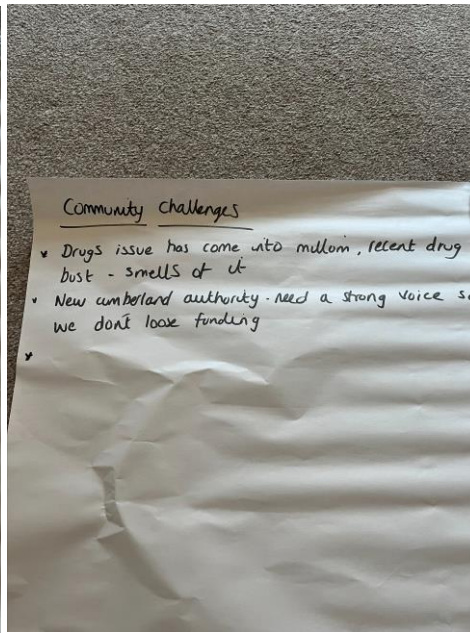 Community Challenges
* Drugs issue has come into millom, recent drug
bust - smells of it
* New cumberland authority - need a strong voice so
we don't loose funding
*